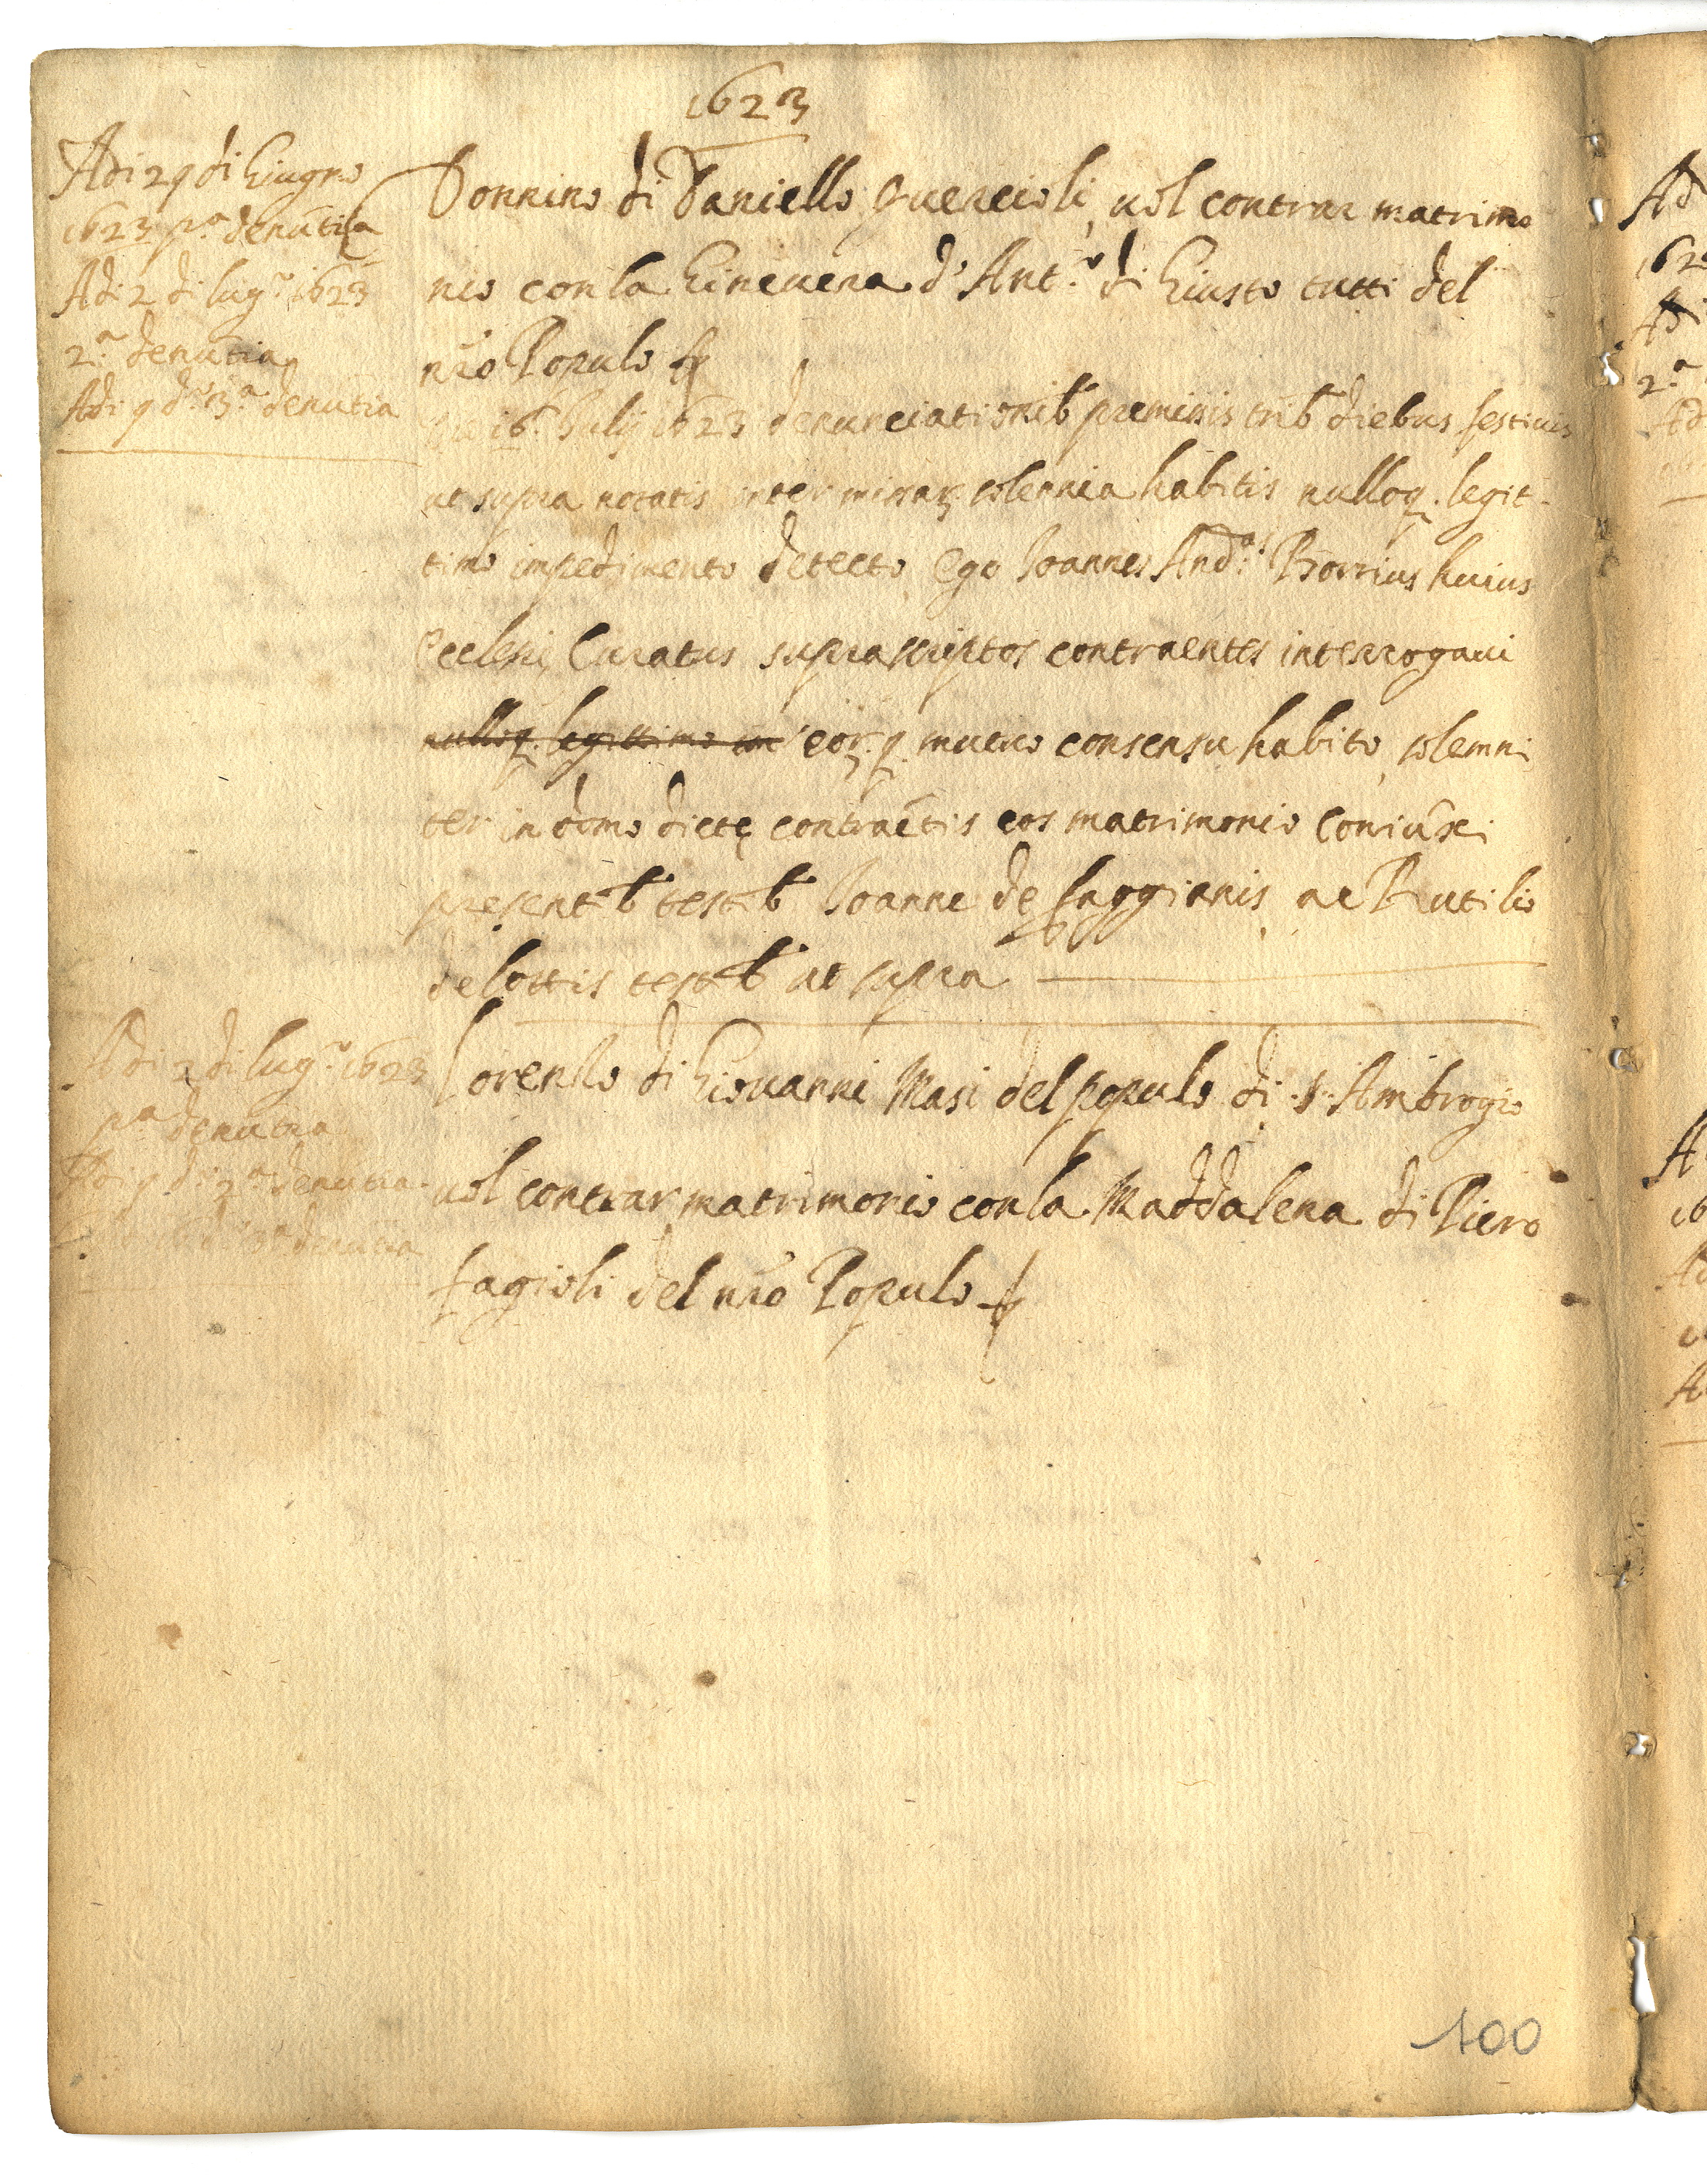 1623
Adi 29 di Giugno
1623 pª denūtia
Adi 2 di lugº 1623
2ª denūtia
Adi 9 dº 3ª denūtia
Donnino di Daniello Quercioli uol contrar matrimo
nio con la Gineuera d'Antº di Giusto tutti del
nr̄o Populo
16 Julij 1623 denunciationib' premissis trib' diebus festiuis
ut supra notatis inter missarꝝ solennia habitis nulloq; legit-
timo impedimento detecto ego Joannes Andª Borrius huius
Ecclesię Curatus suprascriptos contraentes interrogaui
nulloq; legittimo im eorꝝq; mutuo consensu habito solemni
ter in domo dictę contraētis eos matrimonio coniūxi
presentib' testib' Joanne de faggianis ac Rutilio
de lottis testib' ut supra
Adi 2 di lugº 1623
pª denūtia
Adi 9 dº 2ª denūtia
dº 3ª denūtia
Lorenzo di Giouanni Masi del populo di S. Ambrogio
uol contrar matrimonio con la Maddalena di Piero
fagioli del nr̄o Populo
100